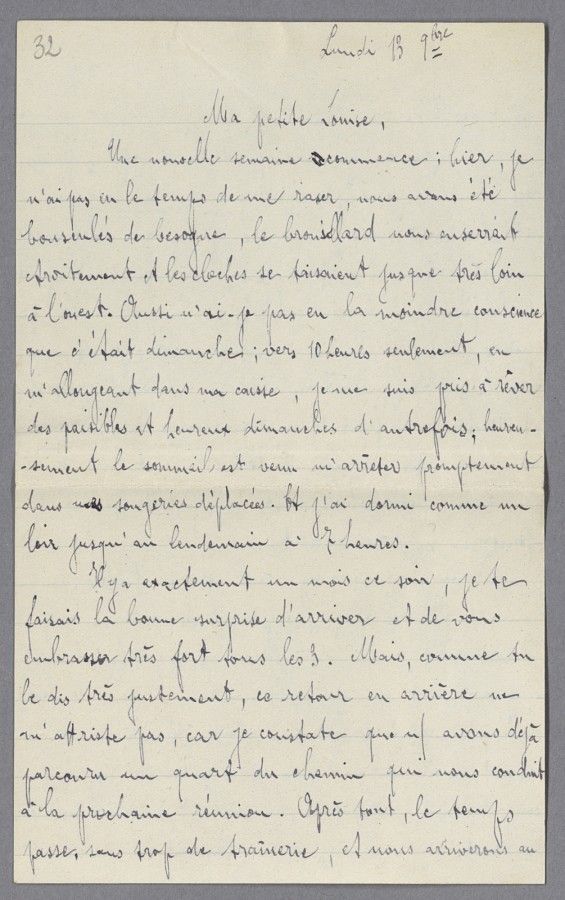 32
Lundi 13 9bre
Ma petite Louise,
Une nouvelle semaine recommence ; hier, je
n'ai pas eu le temps de me raser, nous avons été
bousculés de besogne, le brouillard nous enserrait
étroitement et les cloches se taisaient jusque très loin
à l'ouest. Aussi n'ai-je pas eu la moindre conscience
que c'était dimanche ; vers 10 heures seulement, en
m'allongeant dans ma caisse, je me suis pris à rêver
des paisibles et heureux dimanches d'autrefois ; heureu-
-sement le sommeil est venu m'arrêter promptement
dans mes songeries déplacées. Et j'ai dormi comme un
loir jusqu'au lendemain à 7 heures.
Il y a exactement un mois ce soir, je te
faisais la bonne surprise d'arriver et de vous
embrasser très fort tous les 3. Mais, comme tu
le dis très justement, ce retour en arrière ne
m'attriste pas, car je constate que n/ avons déjà
parcouru un quart du chemin qui nous conduit
à la prochaine réunion. Après tout, le temps
passe, sans trop de traînerie, et nous arriverons au